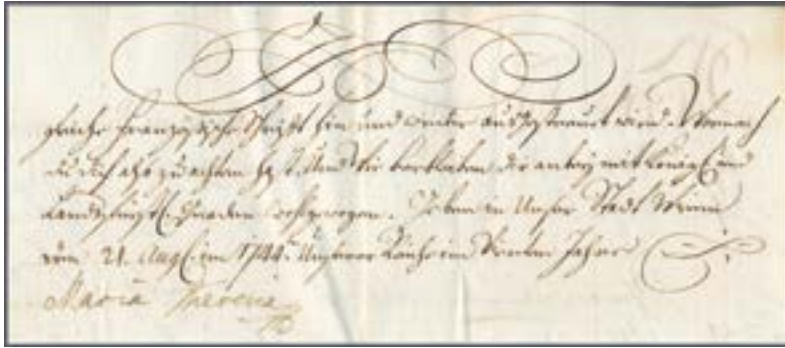 Französische Schrift hin und wieder ausgestreuet wird. Wornach
du dich also zu achten und Wir verbleiben dir anbey mit und
Landsfürstl. Gnaden wohlgewogen. Geben in Unser Stadt Wienn
den 21. Aug. im 1744. Unserer Reiche im Vierten Jahre
Maria Theresia